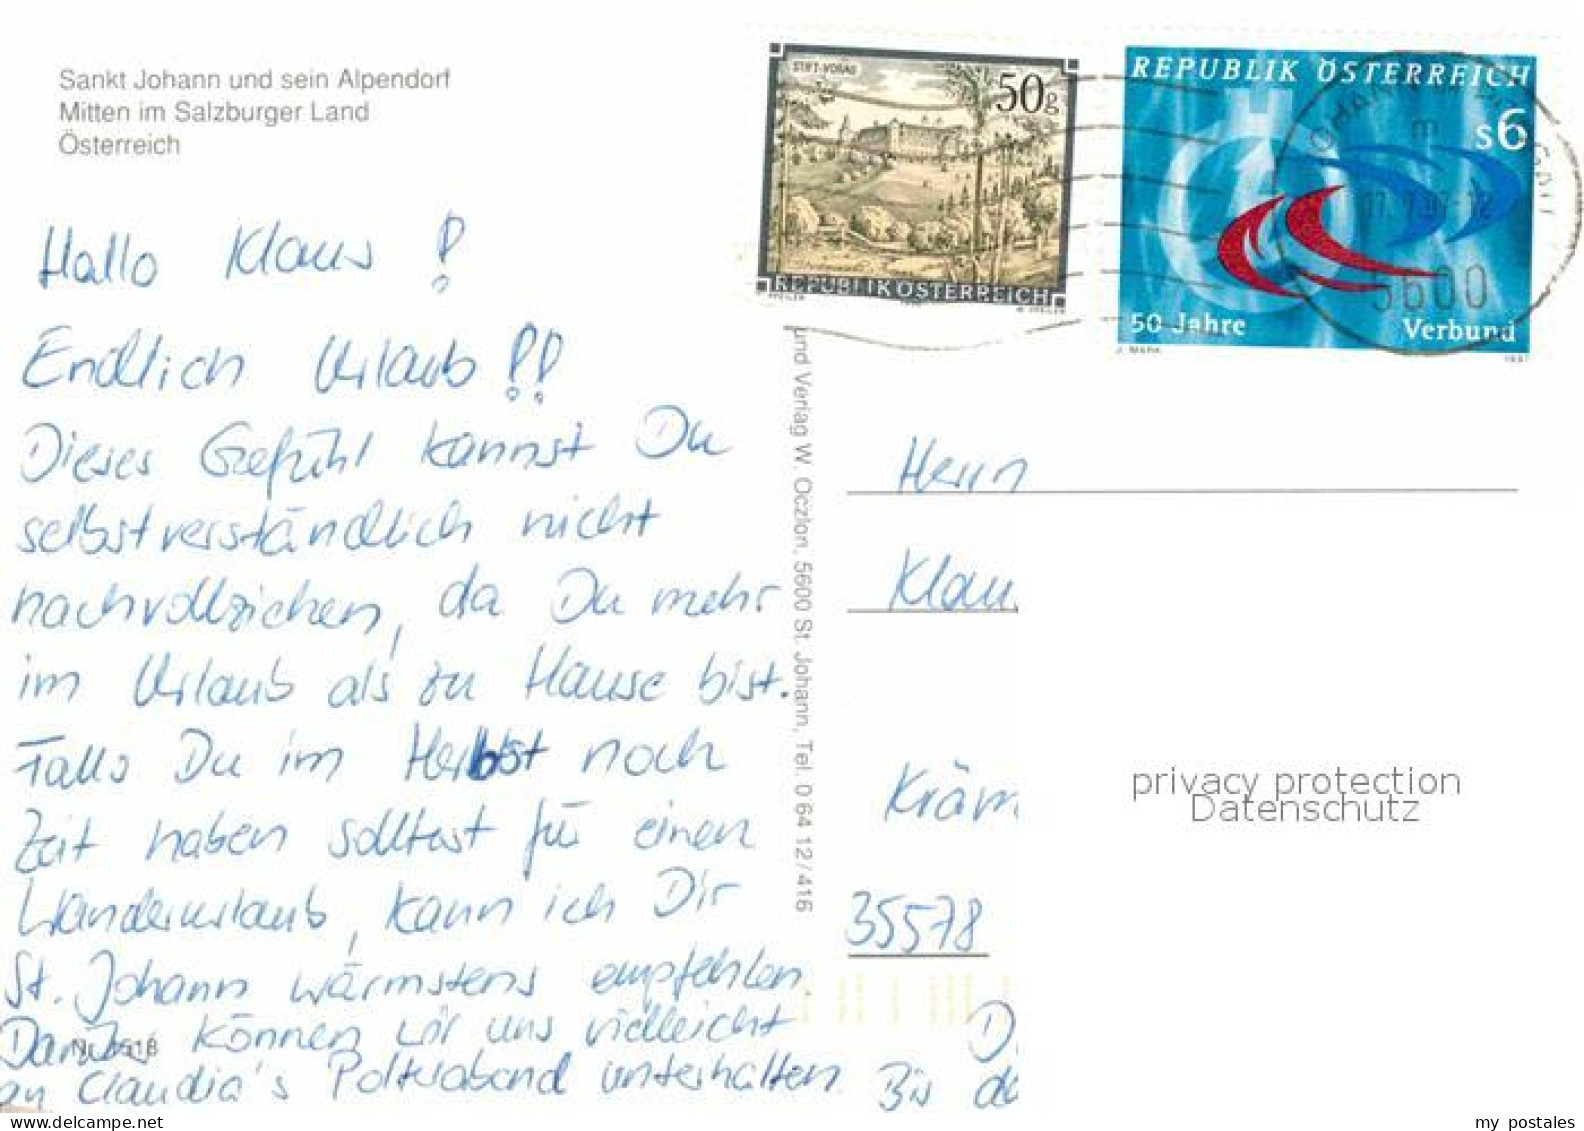 Sankt Johann und sein Alpendorf
Mitten im Salzburger Land
Österreich
STIFT-VORAU
50g
REPUBLIK ÖSTERREICH
REPUBLIK ÖSTERREICH
s6
50 Jahre
Verbund
J. MARK
1997
5600
Hallo Klaus!
Endlich Urlaub!!
Dieses Gefühl kannst Du
selbstverständlich nicht
nachvollziehen, da Du mehr
im Urlaub als zu Hause bist.
Falls Du im Herbst noch
Zeit haben solltest für einen
Wanderurlaub, kann ich Dir
St. Johann wärmstens empfehlen.
können wir uns vielleicht
an Claudia's Polterabend unterhalten.
und Verlag W. Oczlon, 5600 St. Johann, Tel. 0 64 12 / 416
Herrn
Klau
Kräm
35578
D
Bis da
privacy protection
Datenschutz
my postales